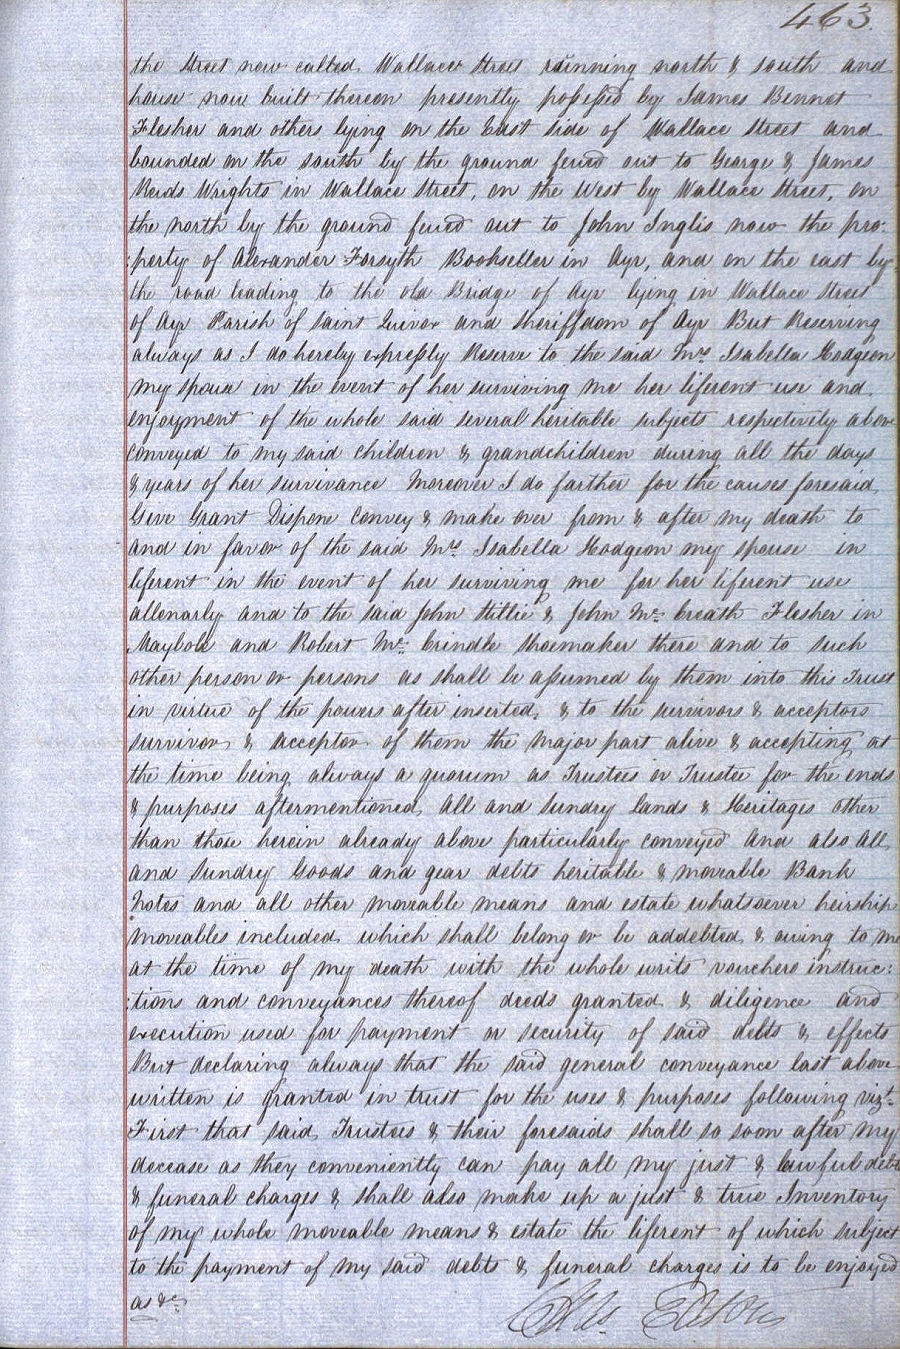 463.
the Street now called Wallace Street running north & south and
house now built thereon presently possessed by James Bennet
Flesher and others lying on the East side of Wallace Street and
bounded on the south by the ground feued out to George & James
Reids Wrights in Wallace Street, on the West by Wallace Street, on
the north by the ground feued out to John Inglis now the pro:
:perty of Alexander Forsyth Bookseller in Ayr, and on the east by
the road leading to the old Bridge of Ayr lying in Wallace Street
of Ayr Parish of Saint Quivox and Sheriffdom of Ayr But Reserving
always as I do hereby expressly Reserve to the said Mrs Isabella Hodgeon
my spouse in the event of her surviving me her liferent use and
enjoyment of the whole said several heritable subjects respectively above
conveyed to my said children & grandchildren during all the days
& years of her survivance Moreover I do farther for the causes foresaid
Give Grant Dispone Convey & make over from & after my death to
and in favor of the said Mrs Isabella Hodgeon my spouse in
liferent in the event of her surviving me for her liferent use
allenarly and to the said John Stillie & John Mc.Creath Flesher in
Maybole and Robert Mc.Crindle Shoemaker there and to such
other person or persons as shall be assumed by them into this Trust
in virtue of the powers after inserted, & to the survivors & acceptors
survivor & acceptor of them the major part alive & accepting at
the time being always a quorum as Trustees or Trustee for the ends
& purposes aftermentioned, All and Sundry Lands & Heritages other
than those herein already above particularly conveyed And also all
and Sundry Goods and gear debts heritable & moveable Bank
Notes and all other moveable means and estate whatsoever heirship
moveables included which shall belong or be addebted & owing to me
at the time of my death with the whole writs vouchers instruc:
:tions and conveyances thereof deeds granted & diligence and
execution used for payment or security of said debts & effects
But declaring always that the said general conveyance last above
written is granted in trust for the uses & purposes following vizt.
First that said Trustees & their foresaids shall so soon after my
decease as they conveniently can pay all my just & lawful debts
& funeral charges & shall also make up a just & true Inventory
of my whole moveable means & estate the liferent of which subject
to the payment of my said debts & funeral charges is to be enjoyed
as &c